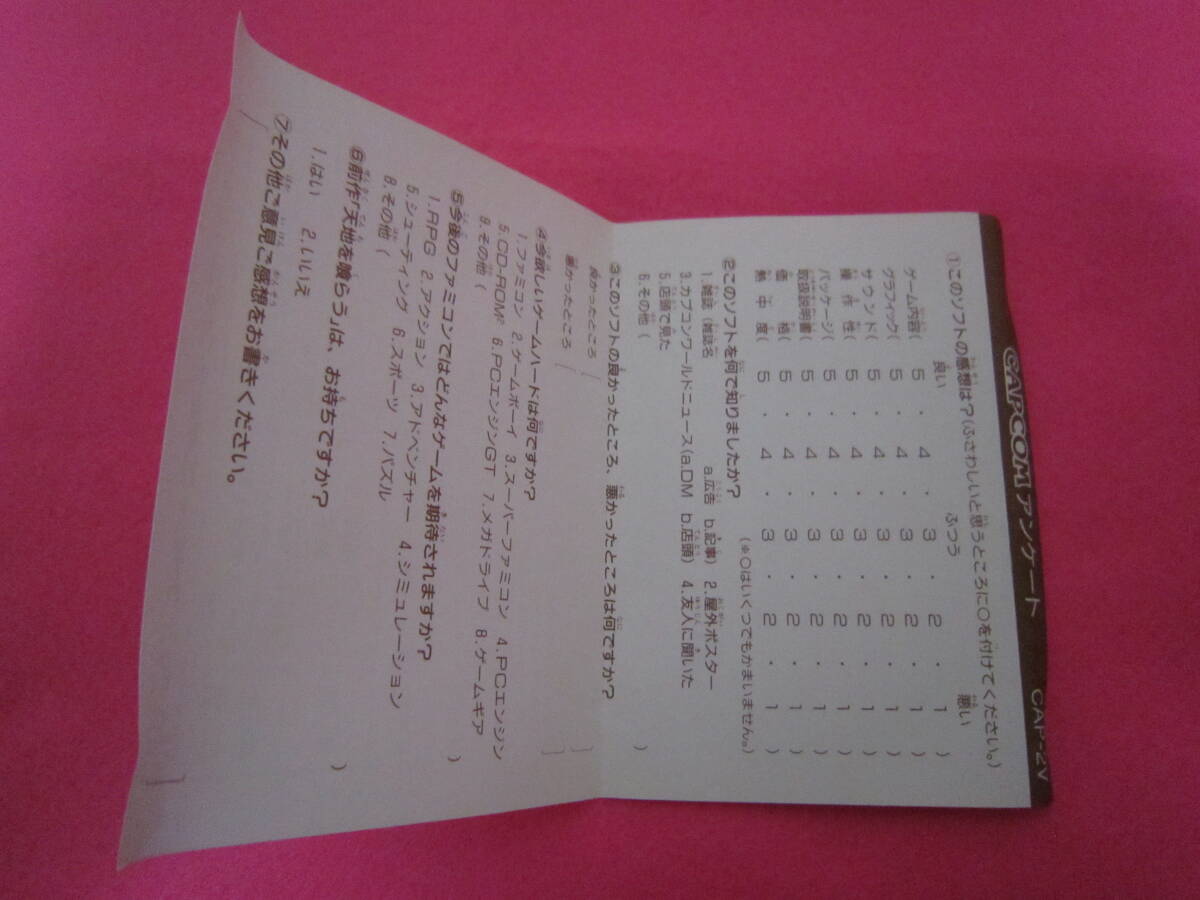 CAPCOMアンケート CAP-2V
①このソフトの感想は？(ふさわしいと思うところに○を付けてください。)
良い ふつう 悪い
ゲーム内容( 5 ・ 4 ・ 3 ・ 2 ・ 1 )
グラフィック( 5 ・ 4 ・ 3 ・ 2 ・ 1 )
サウンド( 5 ・ 4 ・ 3 ・ 2 ・ 1 )
操作性( 5 ・ 4 ・ 3 ・ 2 ・ 1 )
パッケージ( 5 ・ 4 ・ 3 ・ 2 ・ 1 )
取扱説明書( 5 ・ 4 ・ 3 ・ 2 ・ 1 )
価格( 5 ・ 4 ・ 3 ・ 2 ・ 1 )
熱中度( 5 ・ 4 ・ 3 ・ 2 ・ 1 )
②このソフトを何で知りましたか？ (※○はいくつでもかまいません。)
1.雑誌(雑誌名 a.広告 b.記事) 2.屋外ポスター
3.カプコンワールドニュース(a.DM b.店頭) 4.友人に聞いた
5.店頭で見た
6.その他( )
③このソフトの良かったところ、悪かったところは何ですか？
良かったところ[ ]
悪かったところ[ ]
④今欲しいゲームハードは何ですか？
1.ファミコン 2.ゲームボーイ 3.スーパーファミコン 4.PCエンジン
5.CD-ROM² 6.PCエンジンGT 7.メガドライブ 8.ゲームギア
9.その他( )
⑤今後のファミコンではどんなゲームを期待されますか？
1.RPG 2.アクション 3.アドベンチャー 4.シミュレーション
5.シューティング 6.スポーツ 7.パズル
8.その他( )
⑥前作「天地を喰らう」は、お持ちですか？
1.はい 2.いいえ
⑦その他ご意見ご感想をお書きください。